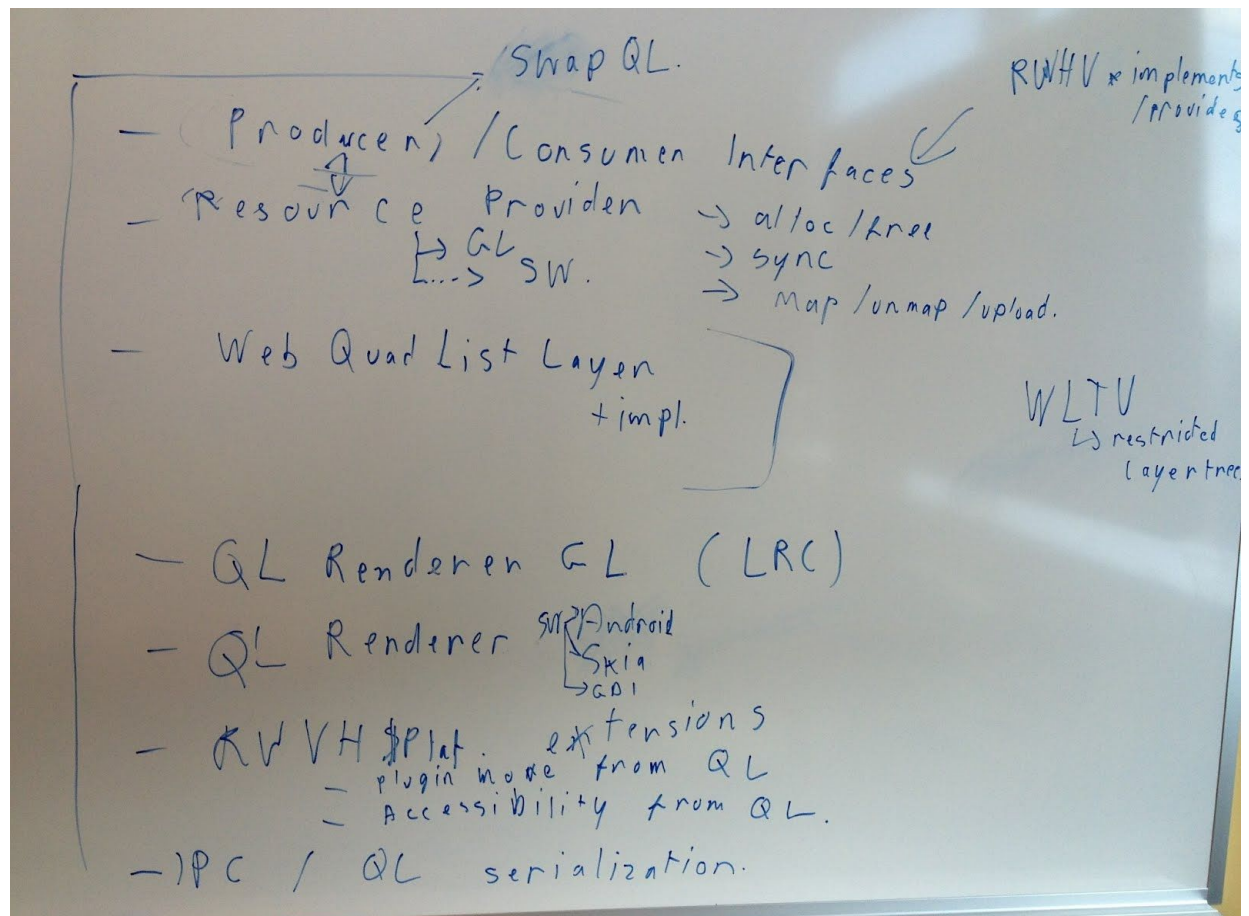 Swap QL.
RWHV * implements
/provides
- Producer, /Consumer Interfaces
- Resource Provider → alloc/free
↳ GL → sync
↳ SW. → Map/unmap/upload.
- Web Quad List Layer
+ impl.
WLTV
↳ restricted
layer tree
- QL Renderer GL (LRC)
- QL Renderer SW → Android
→ Skia
→ GDI
- RWVH $Plat. extensions
- plugin move from QL
- Accessibility from QL.
- IPC / QL serialization.